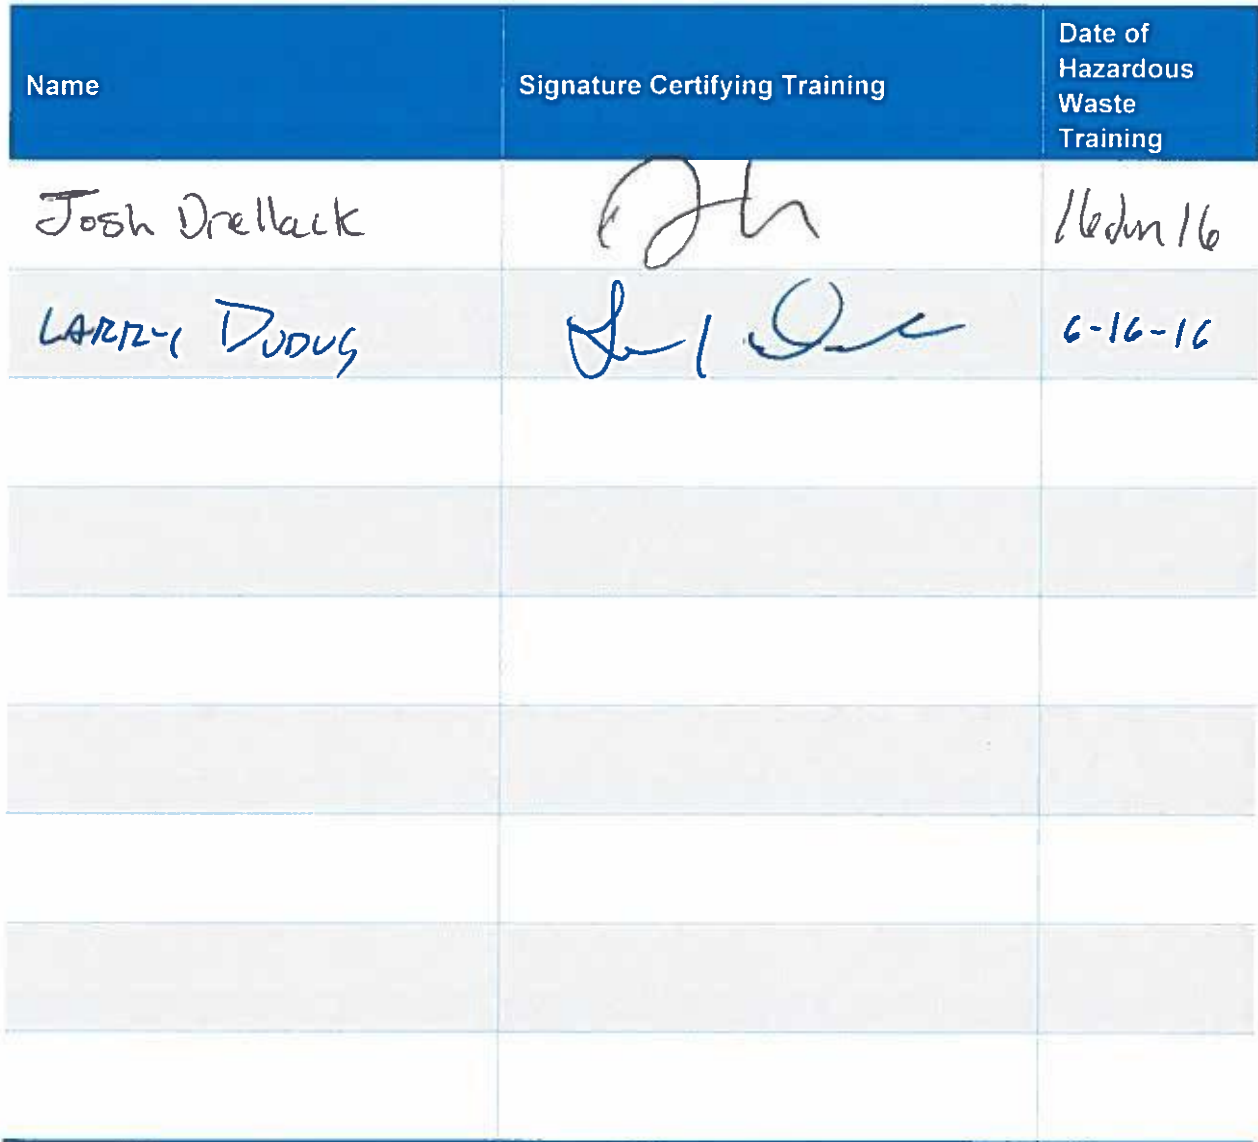 Name
Signature Certifying Training
Date of
Hazardous
Waste
Training
Josh Drellack
16 Jun 16
LARRY DUDUS
6-16-16